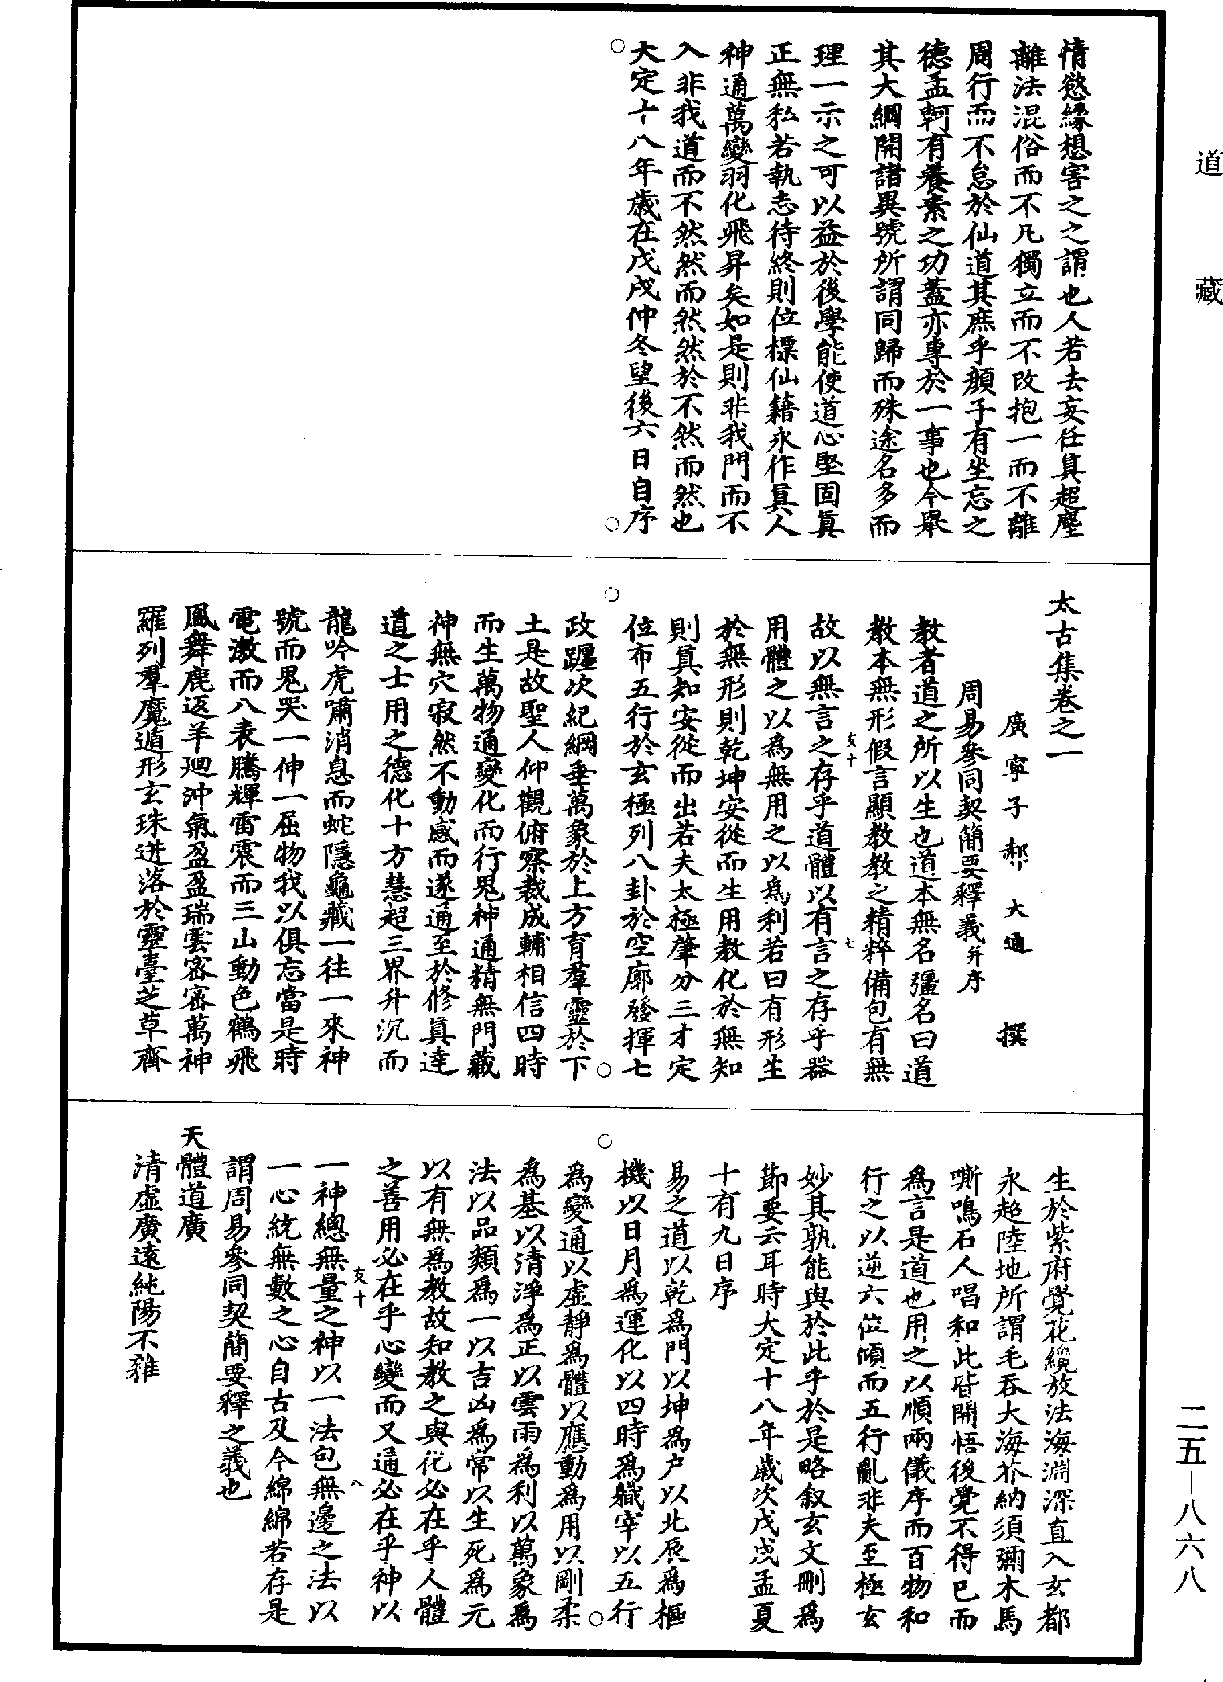 道藏
情慾緣想害之之謂也人若去妄任真超塵
離法混俗而不凡獨立而不改抱一而不離
周行而不怠於仙道其庶乎顏子有坐忘之
德孟軻有養素之功蓋亦專於一事也今舉
其大綱開諸異號所謂同歸而殊途名多而
理一示之可以益於後學能使道心堅固真
正無私若執志待終則位標仙籍永作真人
神通萬變羽化飛昇矣如是則非我門而不
入非我道而不然然而然然於不然而然也
大定十八年歲在戊戌仲冬望後六日自序
太古集卷之一
廣寧子郝大通撰
周易參同契簡要釋義并序
教者道之所以生也道本無名彊名曰道
教本無形假言顯教教之精粹備包有無
故以無言之存乎道體以有言之存乎器
亥十 七
用體之以為無用之以為利若曰有形生
於無形則乾坤安從而生用教化於無知
則真知安從而出若夫太極肇分三才定
位布五行於玄極列八卦於空廓發揮七
政躔次紀綱垂萬象於上方育羣靈於下
土是故聖人仰觀俯察裁成輔相信四時
而生萬物通變化而行鬼神通精無門藏
神無穴寂然不動感而遂通至於修真達
道之士用之德化十方慧超三界升沉而
龍吟虎嘯消息而蛇隱龜藏一往一來神
號而鬼哭一伸一屈物我以俱忘當是時
電激而八表騰輝雷震而三山動色鶴飛
鳳舞鹿返羊迴沖氣盈盈瑞雲密密萬神
羅列羣魔遁形玄珠迸落於靈臺芝草齊
生於紫府覺花縱放法海淵深直入玄都
永超陸地所謂毛吞大海芥納須彌木馬
嘶鳴石人唱和此皆開悟後覺不得已而
為言是道也用之以順兩儀序而百物和
行之以逆六位傾而五行亂非夫至極玄
妙其孰能與於此乎於是略敘玄文刪為
節要云耳時大定十八年歲次戊戌孟夏
十有九日序
易之道以乾為門以坤為戶以北辰為樞
機以日月為運化以四時為職宰以五行
為變通以虛靜為體以應動為用以剛柔
為基以清淨為正以雲雨為利以萬象為
法以品類為一以吉凶為常以生死為元
以有無為教故知教之與化必在乎人體
之善用必在乎心變而又通必在乎神以
亥十 八
一神總無量之神以一法包無邊之法以
一心統無數之心自古及今綿綿若存是
謂周易參同契簡要釋之義也
天體道廣
清虛廣遠純陽不雜
二五—八六八